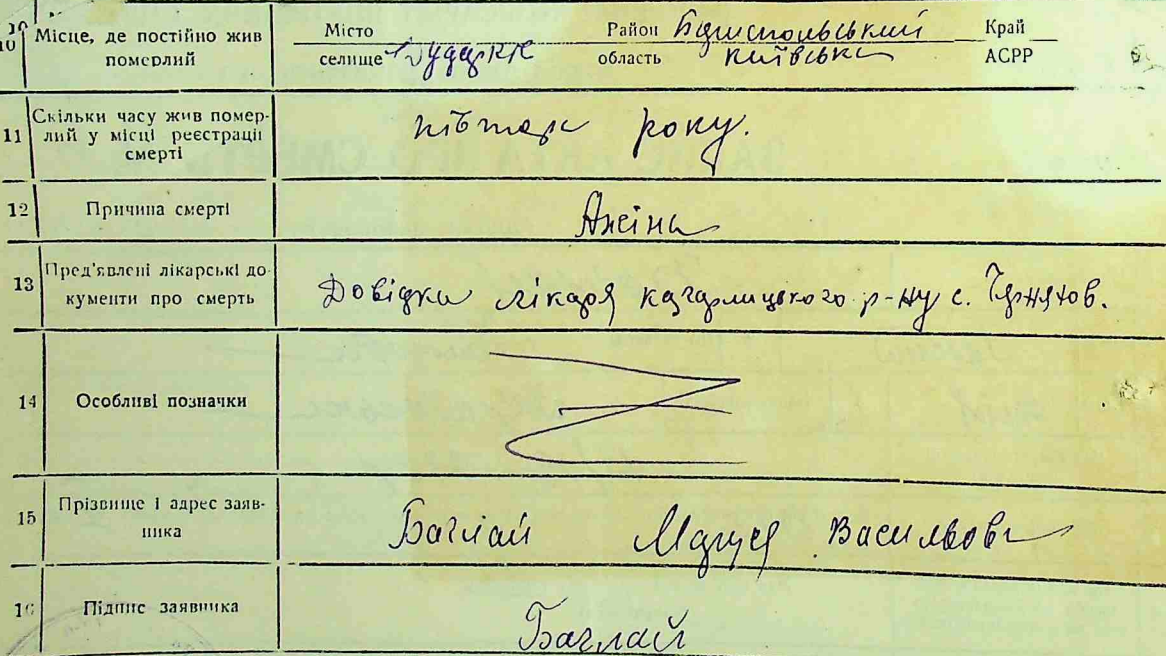 10 Місце, де постійно жив померлий Місто селище Район Бориспольський область Київська Край АСРР
11 Скільки часу жив померлий у місці реєстрації смерті півтора року.
12 Причина смерті Ангіна
13 Пред'явлені лікарські документи про смерть Довідка лікаря кагарлицького р-ну с. Черняхов.
14 Особливі позначки
15 Прізвище і адрес заявника Баглай Маруся Васильовна
16 Підпис заявника Баглай